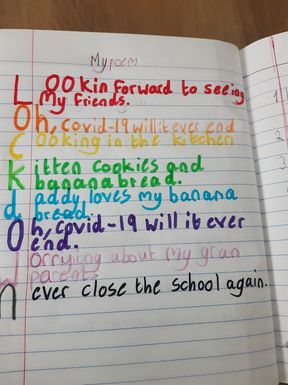 My poem
Lookin forward to seeing
My friends.
Oh, covid-19 will it ever end
Cooking in the kitchen
Kitten cookies and
banana bread.
daddy loves my banana
bread.
Oh, covid-19 will it ever
end.
Worrying about my gran
parents
never close the school again.